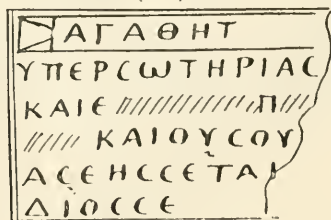 ΑΓΑΘΗΤ
ΥΠΕΡϹΩΤΗΡΙΑϹ
ΚΑΙΕ Π
ΚΑΙΟΥϹΟΥ
ΑϹΕΗϹϹΕΤΑΙ
ΔΙΟϹϹΕ